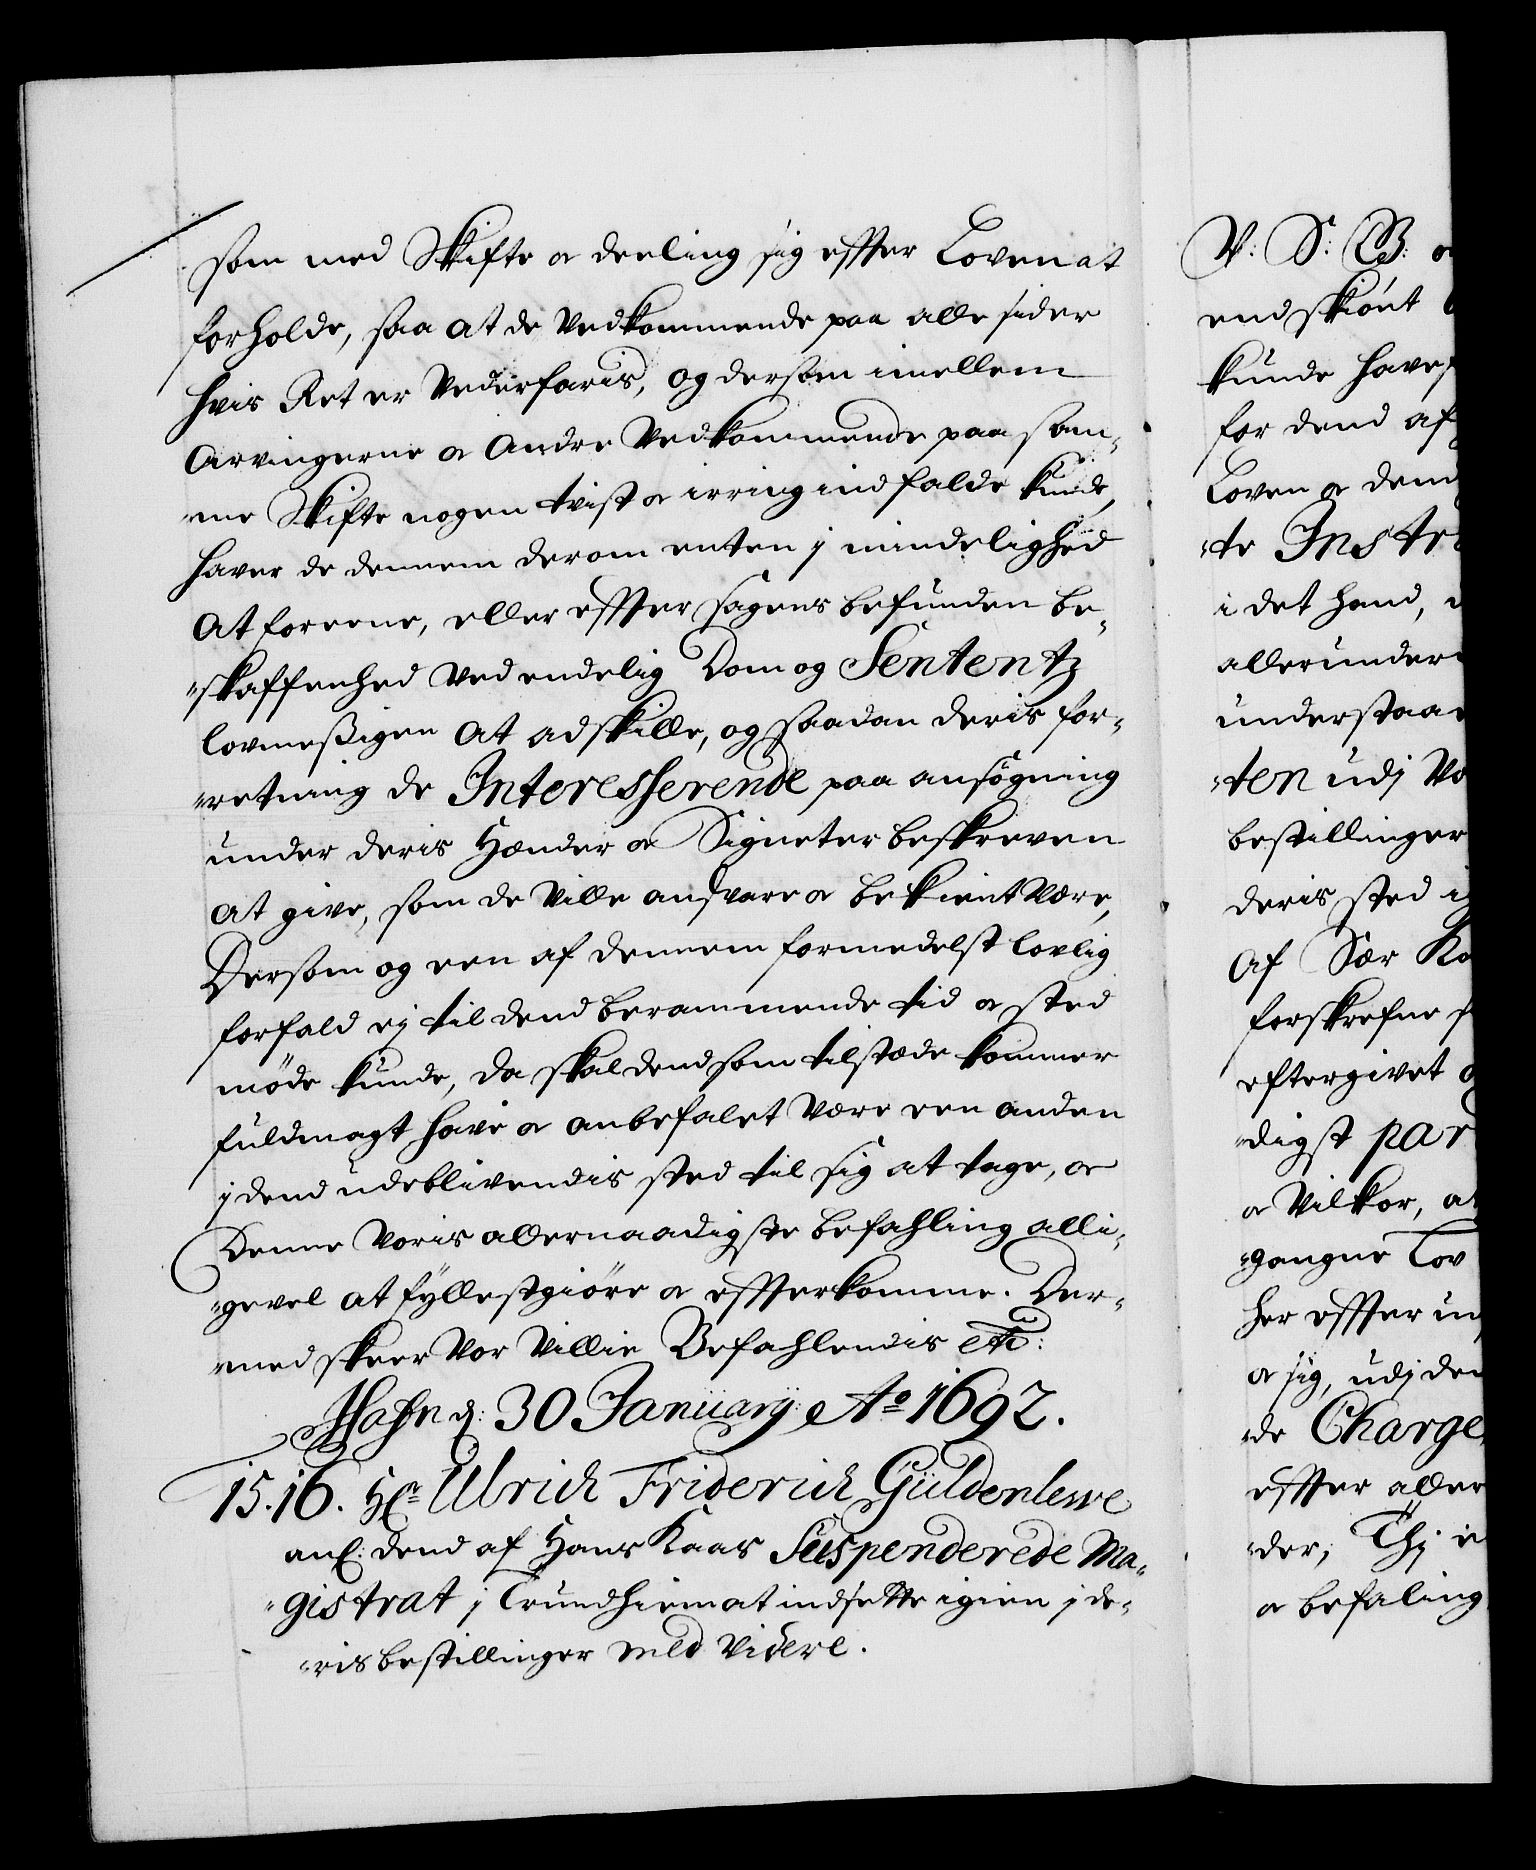 som med Skifte og deeling sig effter Loven at
forholde, saa at de vedkommende paa alle sider
hvis Ret er vederfaris, og dersom imellem
Arvingerne og Andre Vedkommende paa sam-
-me Skifte nogen tvist og irring indfalde kunde,
haver de dennem derom enten j mindelighed
at foreene, eller effter sagens befunden be-
-skaffenhed ved endelig Dom og Sententz
lovmeßigen at adskille, og saadan deris for-
-retning de Interesserende paa ansøgning
under deris Hænder og Signeter beskreven
at give, som de ville ansvare og bekient være,
Dersom og een af dennem formedelst lovlig
forfald ej til dend berammende tid og sted
møde kunde, da skal dend som tilstæde kommer
fuldmagt have og anbefalet være een anden
j dend udeblivendis sted til sig at tage, og
Denne Voris allernaadigste befahling alli-
-gevel at fyllestgiøre og effterkomme. Der-
-med skeer Vor Villie Befahlendis etc:
Hafn d: 30 January Ao 1692.
15.16. Hr Ulrich Friderich Güldenlewe
anl: dend af Hans Kaas Suspenderede Ma-
-gistrat j Trundhiem at indsette igien j de-
-ris bestillinger med videre.
V: S: G: o
endskiønt
kunde haves
for dend af
Loven og dend
-te Instr
i det hand,
allerunder
understaae
-ten udj Vo
bestillinger
deris sted i
Af Sær Ko
forskrefne s
eftergivet o
-digst par
og Vilkor, at
-gangne Lov
her effter u
og sig, udj den
-de Charge
effter aller
-der, Thj i
og befaling